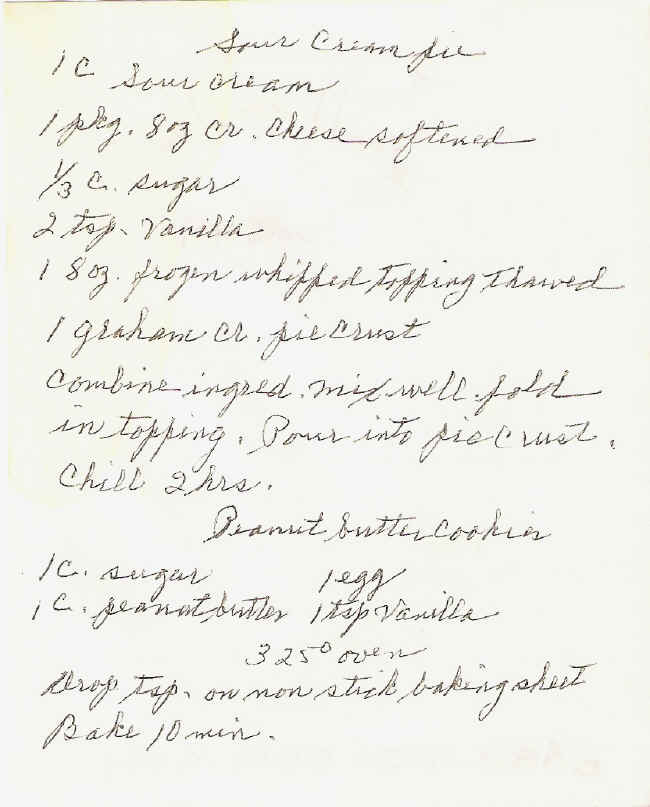 Sour Cream pie
1 C Sour cream
1 pkg. 8 oz cr. cheese softened
1/3 c. sugar
2 tsp. Vanilla
1 8 oz. frozen whipped topping thawed
1 graham cr. pie crust
Combine ingred. mix well. fold
in topping. Pour into pie crust.
Chill 2 hrs.
Peanut butter Cookies
1 C. sugar 1 egg
1 C. peanut butter 1 tsp Vanilla
325° oven
Drop tsp. on non stick baking sheet
Bake 10 min.